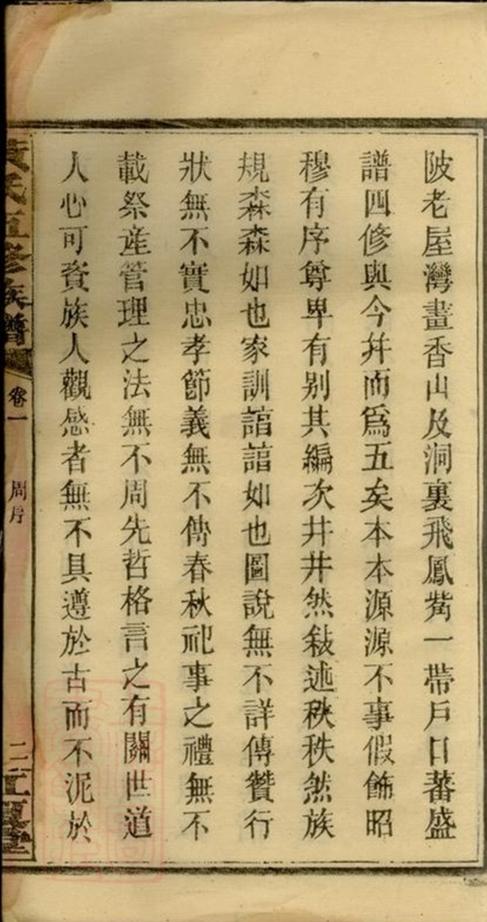 陂老屋灣畫香山及洞裏飛鳳觜一帶戶口蕃盛
譜四修與今幷而爲五矣本本源源不事假飾昭
穆有序尊卑有别其編次井井然敍述秩秩然族
規森森如也家訓諳諳如也圖說無不詳傳贊行
狀無不實忠孝節義無不傳春秋祀事之禮無不
載祭產管理之法無不周先哲格言之有關世道
人心可資族人觀感者無不具遵於古而不泥於
氏五修族譜
卷一
周序
二